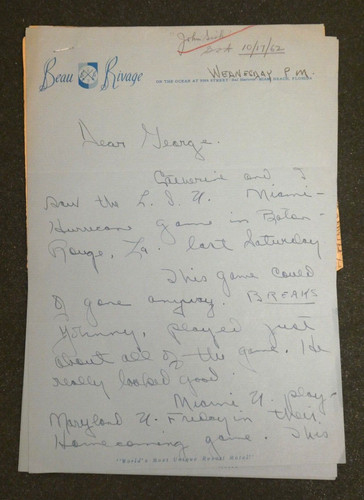 John
10/17/62
Beau Rivage
ON THE OCEAN AT
WEDNESDAY P.M.
Dear George.
Catherine and I
saw the L. S. U. Miami-
Hurricane game in Baton-
Rouge, La. last Saturday
This game could
of gone anyway. BREAKS
Johnny, played just
about all of the game. He
really looked good.
Miami U. play-
Maryland U. Friday in their
Homecoming game. This
"World's Most Unique Resort Motel"